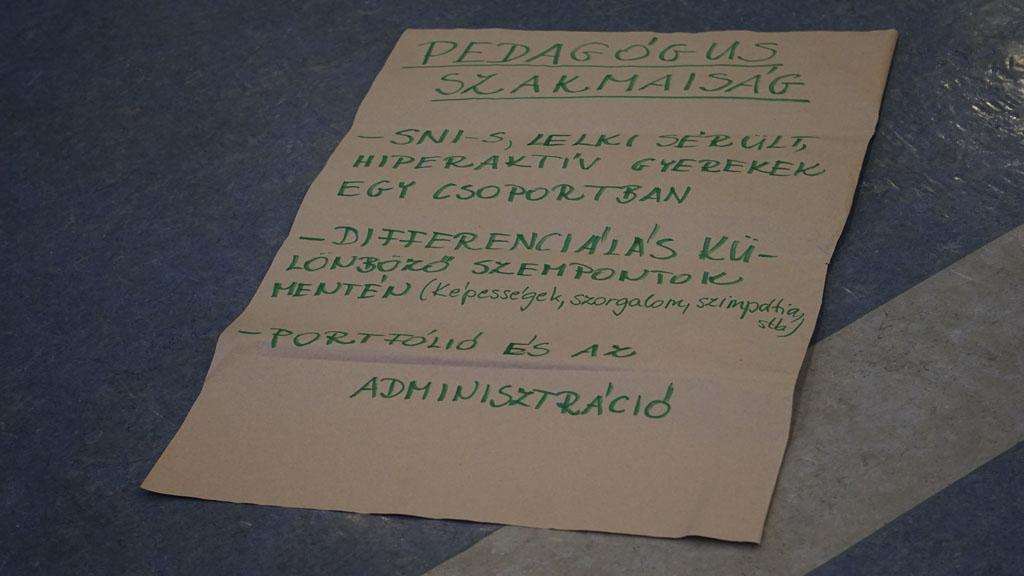 PEDAGÓGUS
SZAKMAISÁG
– SNI-S, LELKI SÉRÜLT,
HIPERAKTÍV GYEREKEK
EGY CSOPORTBAN
– DIFFERENCIÁLÁS KÜ-
LÖNBÖZŐ SZEMPONTOK
MENTÉN (Képességek, szorgalom, szimpátia,
stb)
– PORTFÓLIÓ ÉS AZ
ADMINISZTRÁCIÓ